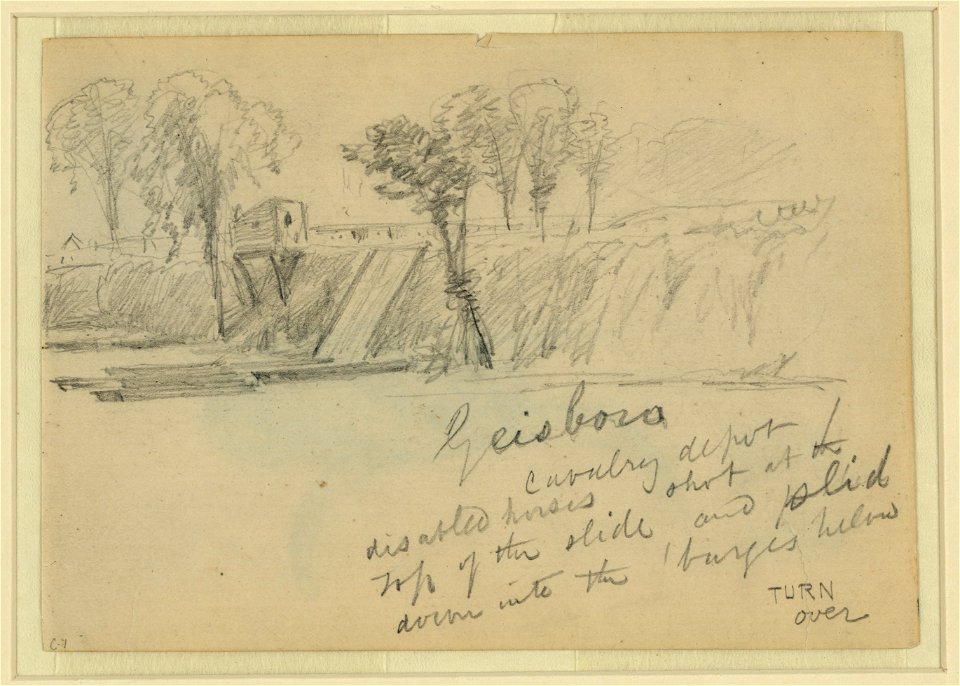 Geisboro
Cavalry depot /
disabled horses shot at the
top of the slide and slid
down into the barges below
TURN
over
C-7